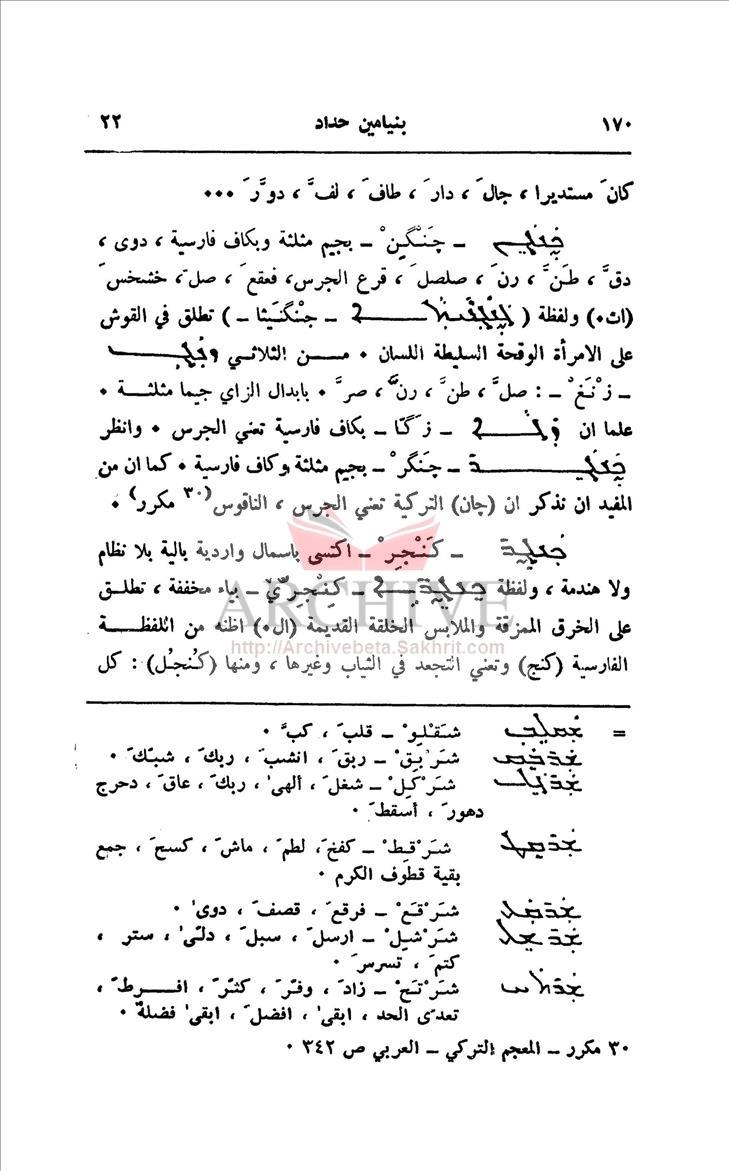 ١٧٠ بنيامين حداد ٢٢
كانَ مستديرا ، جالَ ، دارَ ، طافَ ، لفَّ ، دوَّرَ ...
ـ چَنْگِنْ ـ بجيم مثلثة وبكاف فارسية ، دوى ،
دقَّ ، طَنَّ ، رنَ ، صلصلَ ، قرع الجرس، فعقعَ ، صلَ، خشخسَ
(اث٠) ولفظة ( ـ جنْگَنيثا ـ ) تطلق في القوش
على الامرأة الوقحة السليطة اللسان ٠ من الثلاثي
ـ زْنَغْ ـ : صلَّ ، طنَّ ، رنَّ ، صرَّ ٠ بابدال الزاي جيما مثلثة ٠
علما ان ـ زَگّا ـ بكاف فارسية تعني الجرس ٠ وانظر
ـ چَنگرْ ـ بجيم مثلثة وكاف فارسية ٠ كما ان من
المفيد ان نذكر ان (چان) التركية تعني الجرس ، الناقوس(٣٠ مكرر) ٠
ـ كَنْجِرْ ـ اكتسى باسمال واردية بالية بلا نظام
ولا هندمة ، ولفظة ـ كِنْجِرّيْ ـ بياء مخففة ، تطلق
على الخرق الممزقة والملابس الخلقة القديمة (ال٠) اظنه من اللفظة
الفارسية (كنج) وتعني التجعد في الثياب وغيرها ، ومنها (كُنجُل) : كل
ARCHIVE
http://Archivebeta.Sakhrit.com
= شَقْلِوْ ـ قلبَ ، كبَّ ٠
شَرْبِقْ ـ ربقَ ، انشبَ ، ربكَ ، شبّكَ ٠
شَرْكِلْ ـ شغلَ ، ألهىٰ ، ربكَ ، عاقَ ، دحرج
دهورَ ، أسقطَ ٠
شَرْقِطْ ـ كفخَ، لطمَ ، ماشَ ، كسحَ ، جمع
بقية قطوف الكرم ٠
شَرْقِعْ ـ فرقعَ ، قصفَ ، دوىٰ ٠
شَرْشِلْ ـ ارسلَ ، سبلَ ، دلّىٰ ، ستر ،
كتمَ ، تسرسَ ٠
شَرْتَحْ ـ زادَ ، وفّرَ ، كثّرَ ، افرطَ ،
تعدّى الحد ، ابقىٰ ، افضلَ ، ابقىٰ فضلةً ٠
٣٠ مكرر ـ المعجم التركي ـ العربي ص ٣٤٢ ٠